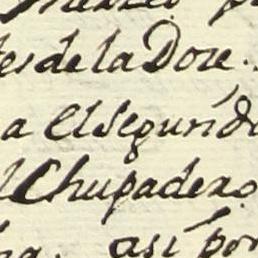 tes de la Doze.
a el Segundo
el Chupadero
asi por